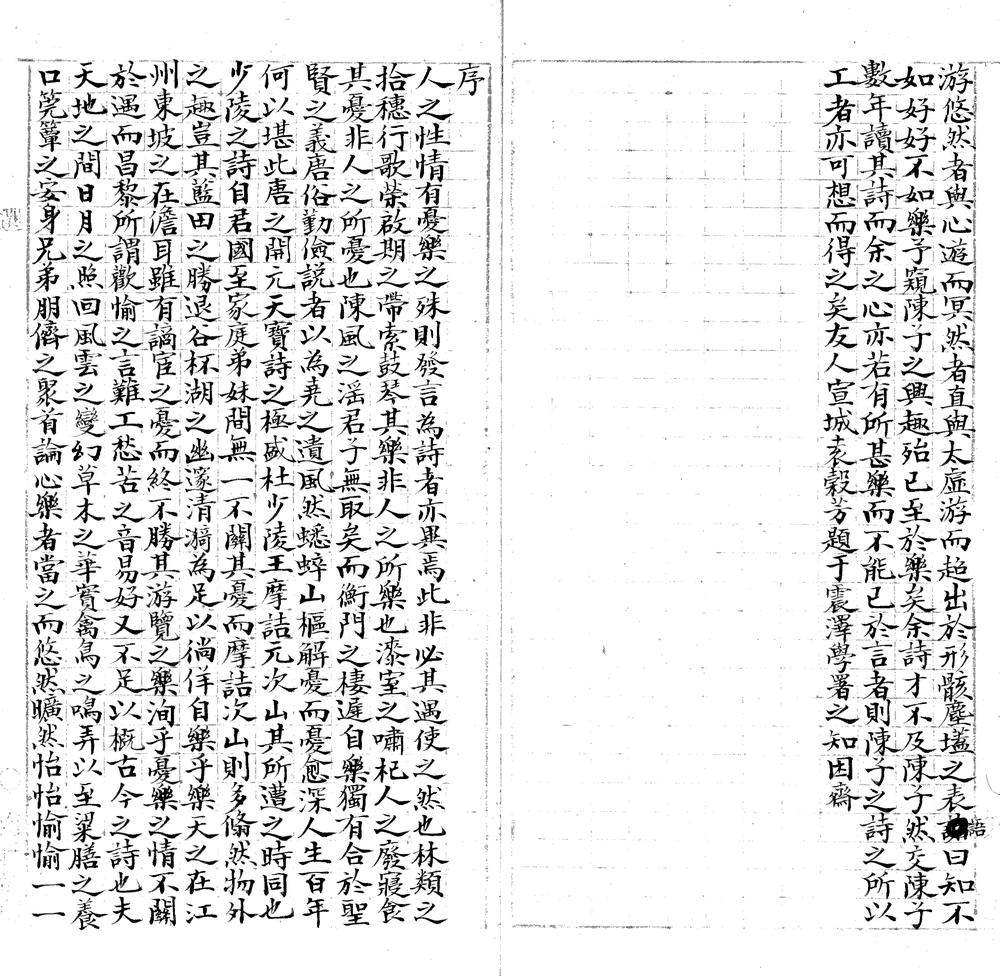 游悠然者與心遊而冥然者直與太虛游而超出於形骸塵壒之表語曰知不
如好好不如樂予窺陳子之興趣殆已至於樂矣余詩才不及陳子然交陳子
數年讀其詩而余之心亦若有所甚樂而不能已於言者則陳子之詩之所以
工者亦可想而得之矣友人宣城袁穀芳題于震澤學署之知困齋
序
人之性情有憂樂之殊則發言為詩者亦異焉此非必其遇使之然也林類之
拾穗行歌榮啟期之帶索鼓琴其樂非人之所樂也漆室之嘯杞人之廢寢食
其憂非人之所憂也陳風之滛君子無取矣而衡門之棲遲自樂獨有合於聖
賢之義唐俗勤儉說者以為堯之遺風然蟋蟀山樞解憂而憂愈深人生百年
何以堪此唐之開元天寶詩之極盛杜少陵王摩詰元次山其所遭之時同也
少陵之詩自君國至家庭弟妹間無一不關其憂而摩詰次山則多翛然物外
之趣豈其藍田之勝退谷杯湖之幽邃清漪為足以徜徉自樂乎樂天之在江
州東坡之在儋耳雖有謫宦之憂而終不勝其游覽之樂洵乎憂樂之情不關
於遇而昌黎所謂歡愉之言難工愁苦之音易好又不足以概古今之詩也夫
天地之間日月之照回風雲之變幻草木之華實禽鳥之鳴弄以至粱膳之養
口筦簟之安身兄弟朋儕之聚首論心樂者當之而悠然曠然怡怡愉愉一一